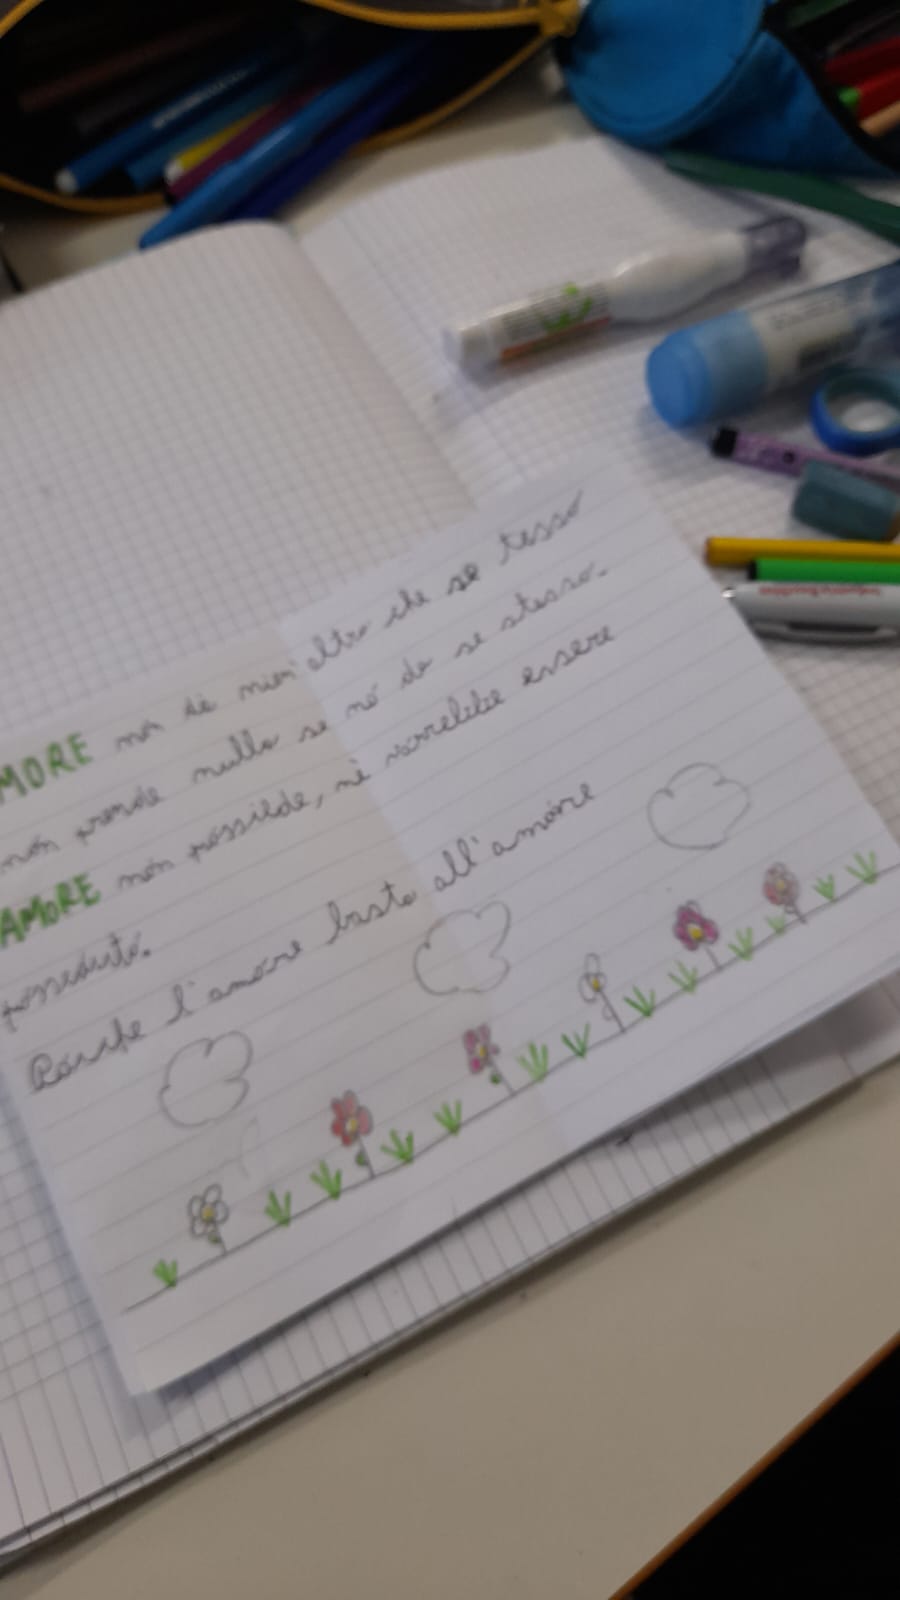 MORE non dà nien altro che se tesso
non prende nulla se nó da se stesso.
AMORE non possiede, nè vorrebbe essere
posseduto.
Perché l'amore basta all'amore